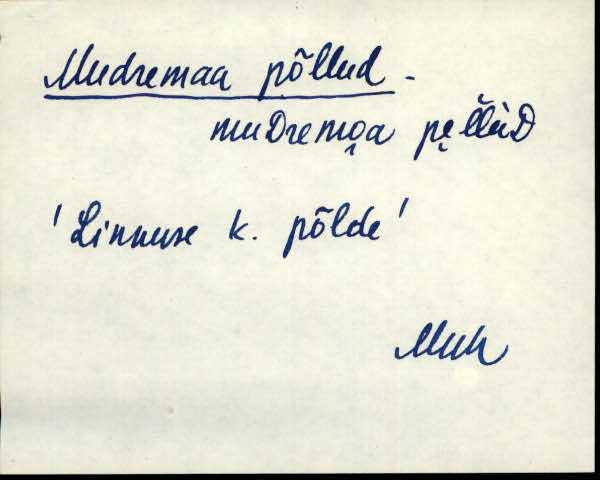 Mudremaa põllud -
muDremo̭a pe̮l̆l̀uD
'Linnuse k. põlde'
Muh